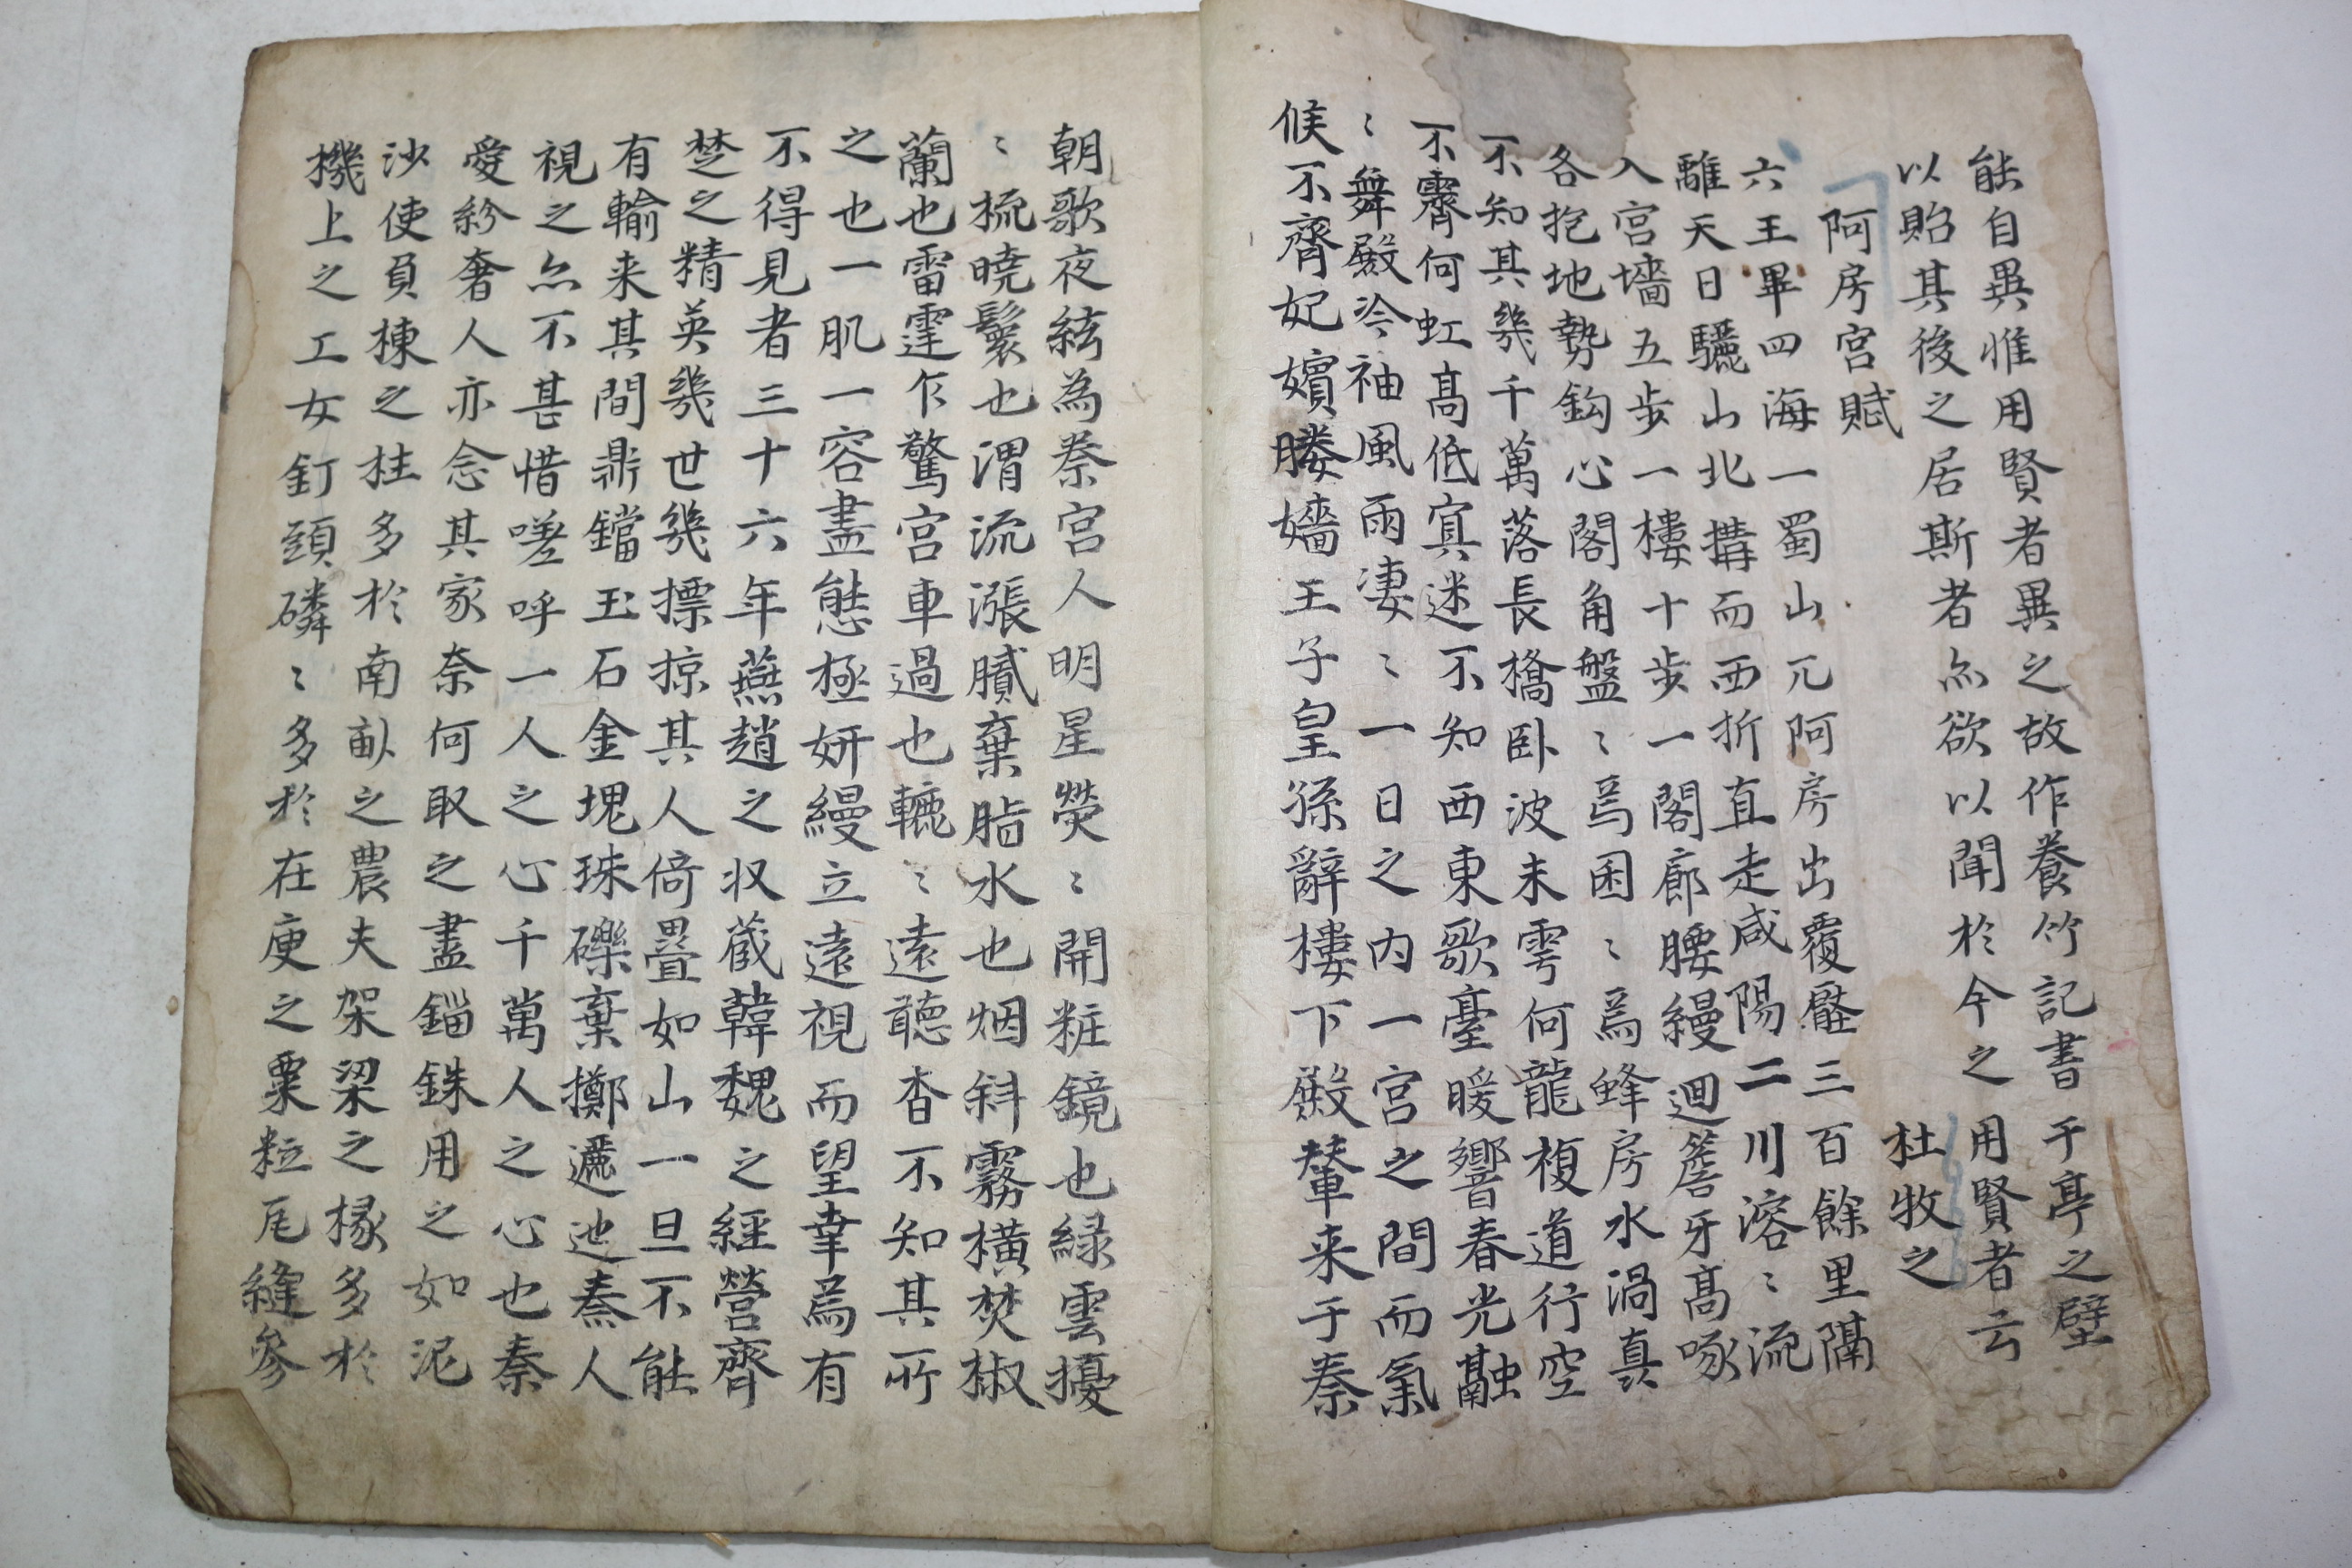 能自異惟用賢者異之故作養竹記書于亭之壁
以貽其後之居斯者亦欲以聞於今之用賢者云
阿房宮賦 杜牧之
六王畢四海一蜀山兀阿房出覆壓三百餘里隔
離天日驪山北搆而西折直走咸陽二川溶〻流
入宮墻五步一樓十步一閣廊腰縵迴簷牙高啄
各抱地勢鈎心閣角盤〻焉囷〻焉蜂房水渦真
不知其幾千萬落長橋卧波未雩何龍複道行空
不霽何虹高低㝠迷不知西東歌臺暖響春光融
〻舞殿冷袖風雨凄〻一日之內一宮之間而氣
候不齊妃嬪媵嬙王子皇孫辭樓下殿輦来于秦
朝歌夜絃為秦宮人明星熒〻開粧鏡也緑雲擾
〻梳曉鬟也渭流漲膩棄脂水也烟斜霧橫焚椒
蘭也雷霆乍驚宮車過也轆〻遠聽杳不知其所
之也一肌一容盡態極妍縵立遠視而望幸焉有
不得見者三十六年燕趙之収蔵韓魏之經營齊
楚之精英幾世幾摽掠其人倚疊如山一旦不能
有輸来其間鼎鐺玉石金塊珠礫棄擲邐迆秦人
視之亦不甚惜嗟呼一人之心千萬人之心也秦
愛紛奢人亦念其家奈何取之盡錙銖用之如泥
沙使負棟之柱多於南畝之農夫架梁之椽多於
機上之工女釘頭磷〻多於在庾之粟粒尾縫參